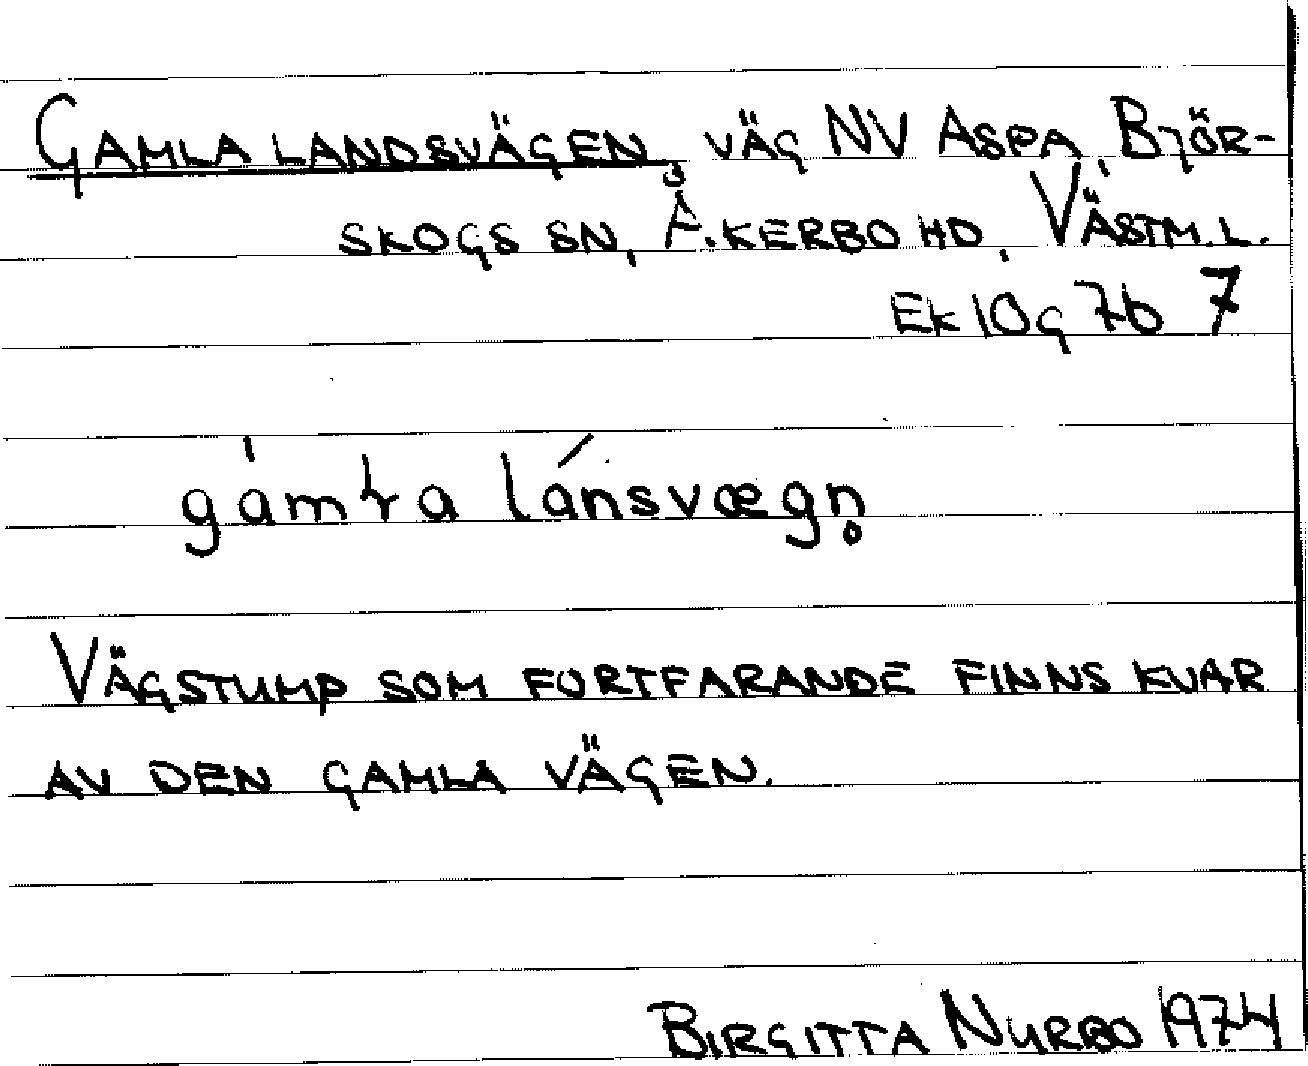 GAMLA LANDSVÄGEN, VÄG NV ASPA, BJÖR-
SKOGS SN, ÅKERBO HD, VÄSTM. L.
EK 10g 7b 7
gamła lánsvægn̥
VÄGSTUMP SOM FORTFARANDE FINNS KVAR
AV DEN GAMLA VÄGEN.
BIRGITTA NURBO 1974